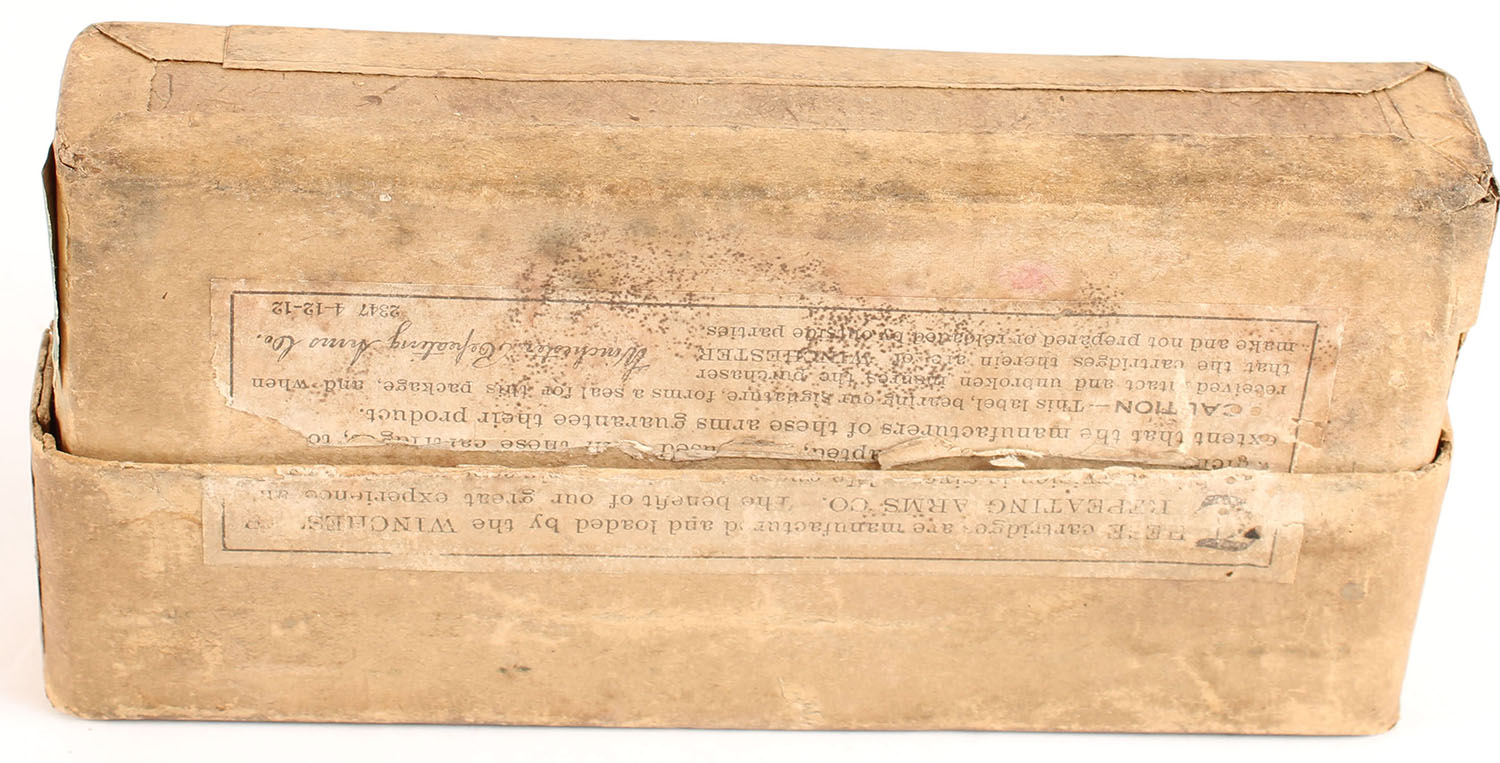 THESE cartridges are manufactured and loaded by the WINCHES
REPEATING ARMS CO. The benefit of our great experience as
used in these cartridges, to
extent that the manufacturers of these arms guarantee their product.
CAUTION—This label, bearing our signature, forms a seal for this package, and when
received intact and unbroken insures the purchaser
that the cartridges therein are of WINCHESTER
make and not prepared or reloaded by outside parties.
Winchester Repeating Arms Co.
2347 4-12-12